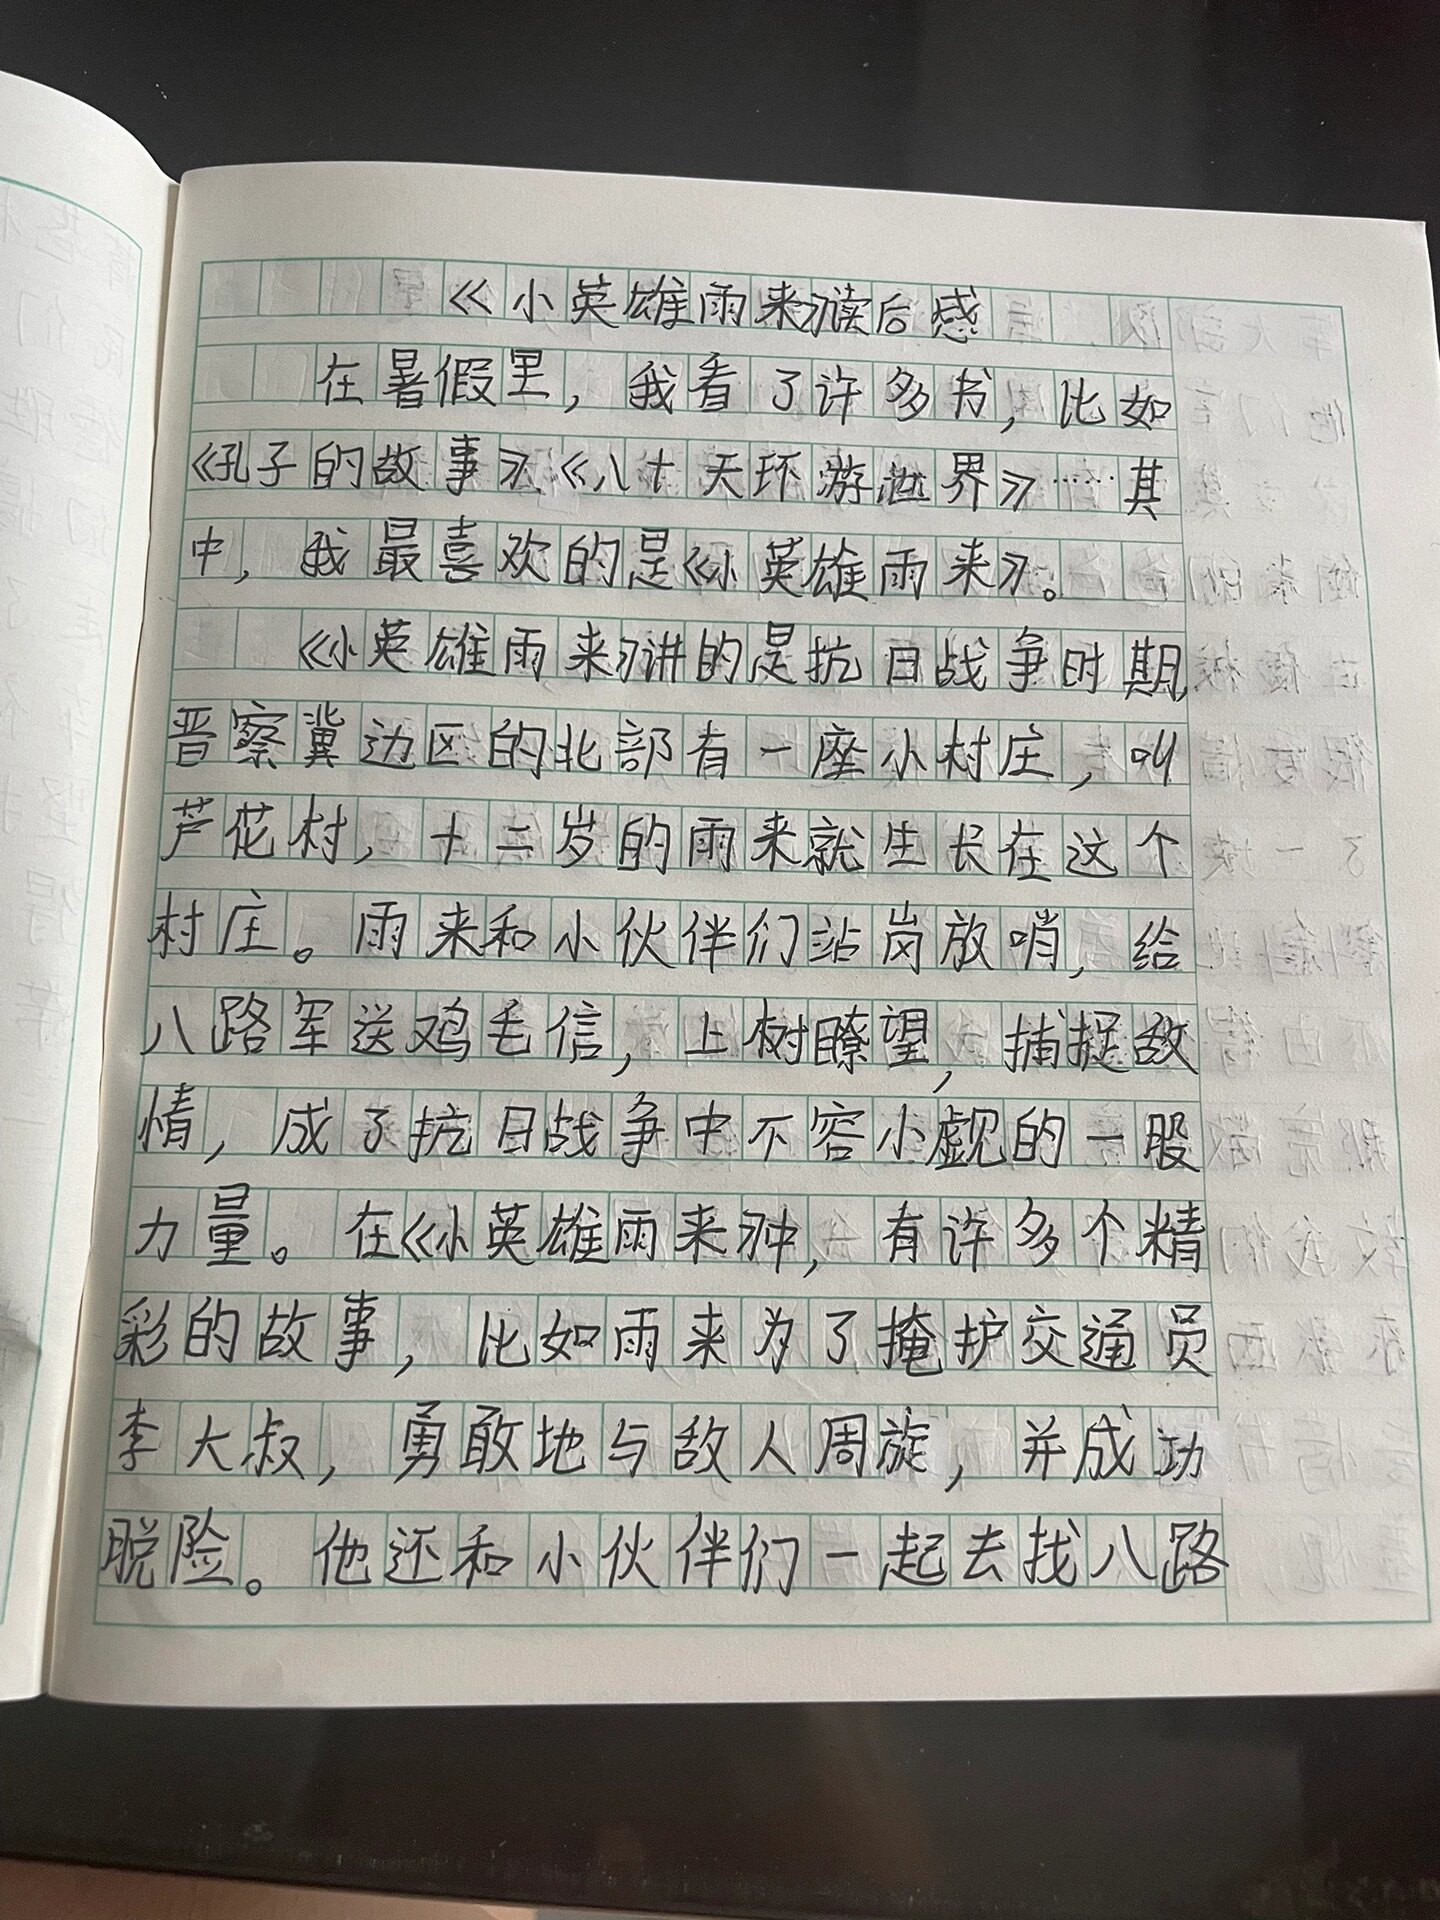 《小英雄雨来》读后感
在暑假里，我看了许多书，比如
《孔子的故事》、《八十天环游世界》……其
中，我最喜欢的是《小英雄雨来》。
《小英雄雨来》讲的是抗日战争时期，
晋察冀边区的北部有一座小村庄，叫
芦花村，十二岁的雨来就生长在这个
村庄。雨来和小伙伴们站岗放哨，给
八路军送鸡毛信，上树瞭望，捕捉敌
情，成了抗日战争中不容小觑的一股
力量。在《小英雄雨来》中，有许多个精
彩的故事，比如雨来为了掩护交通员
李大叔，勇敢地与敌人周旋，并成功
脱险。他还和小伙伴们一起去找八路